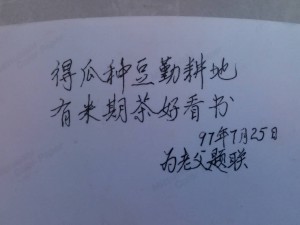 得瓜种豆勤耕地
有米期茶好看书
97年7月25日
为老父题联